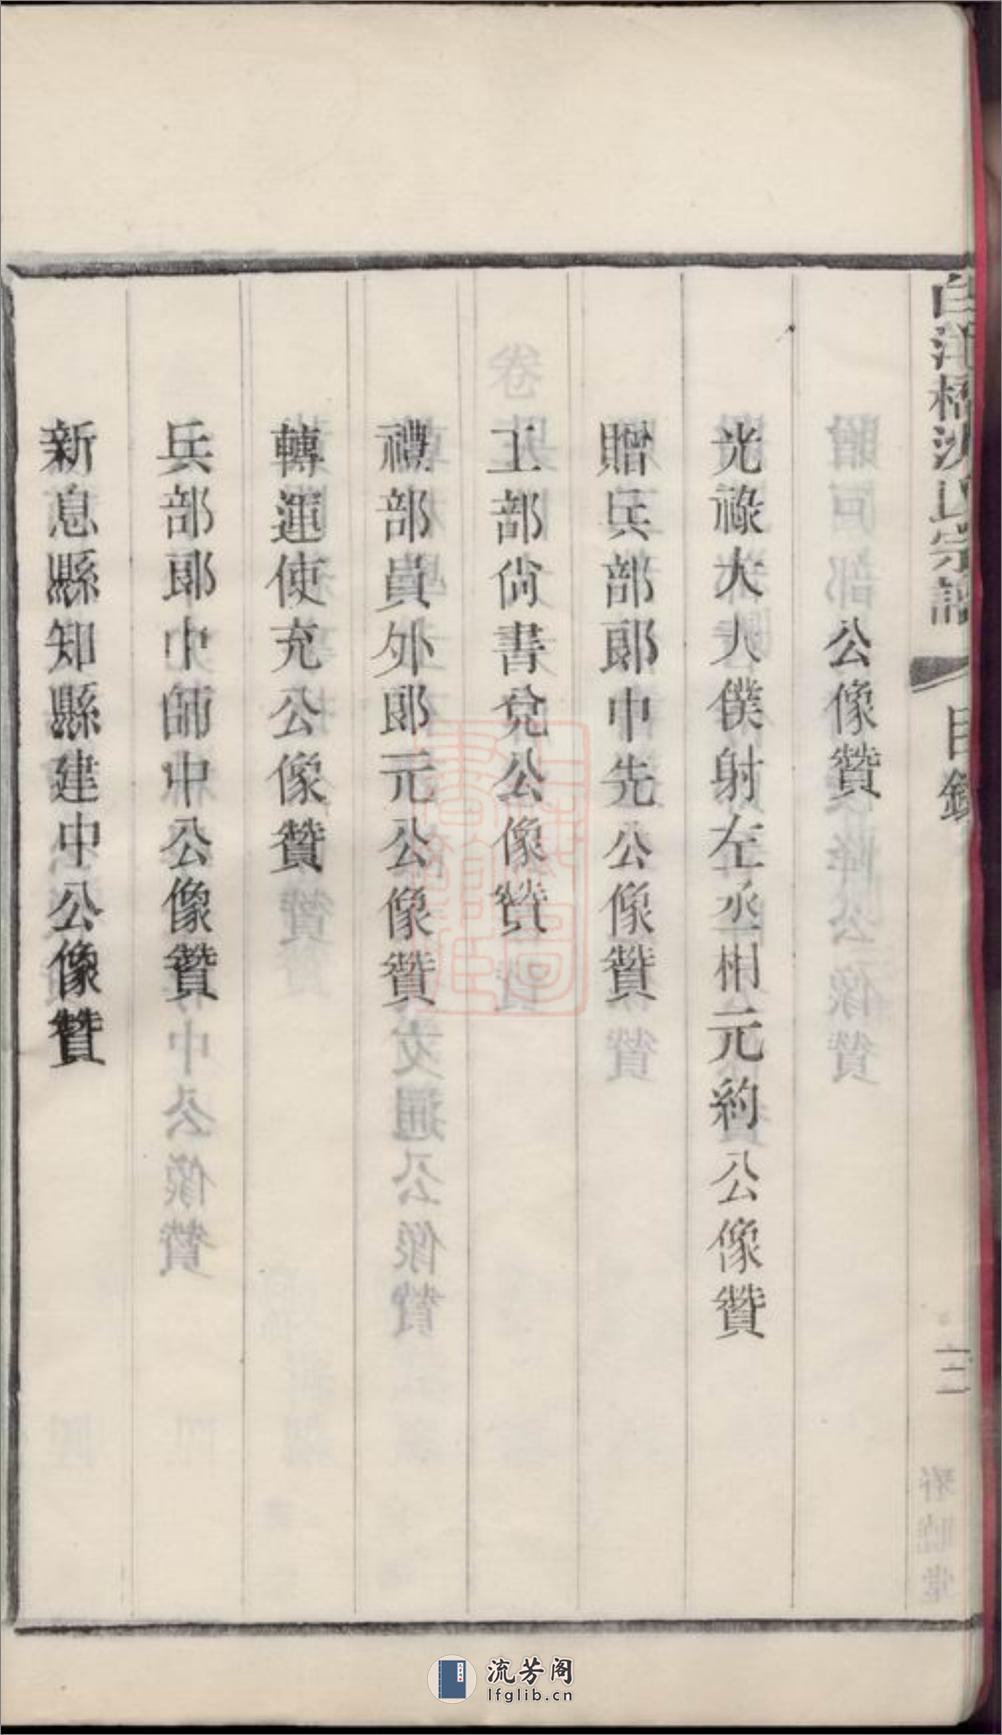 白洋橋沈氏宗譜
目錄
二
公像贊
光祿大人僕射左丞相元約公像贊
贈兵部郎中先公像贊
工部尙書兌公像贊
禮部員外郎元公像贊
轉運使充公像贊
兵部郎中師中公像贊
新息縣知縣建中公像贊
流芳阁
lfglib.cn